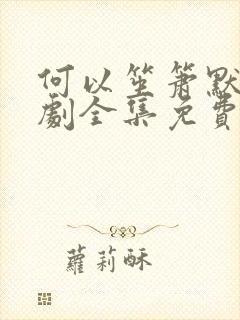 何以笙箫默
劇全集免費
蘿莉酥